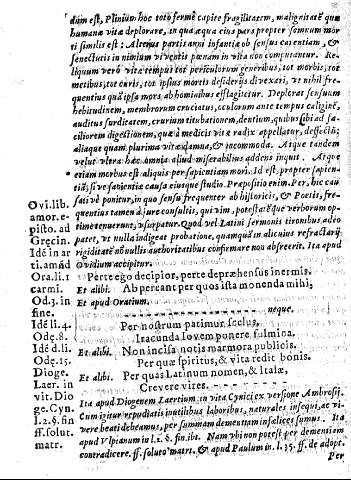 dum est, Plinium hoc toto ferme capite fragilitatem, malignitatẽ quæ
humanæ vitæ deplorare, in qua æqua eius pars prepter somnum mor
ti similis est: Alterius partis anni infantiæ ob sensus carentiam, &
senectutis in nimium viventis pœnam in vita non computantur. Re-
liquum verò vitæ tempus tot periculorum generibus, tot morbis, tot
metibus, tot curis, tot ipsius mortis desiderijs divexari, vt nihil fre-
quentius quàm ipsa mors, ab hominibus efflagitetur. Deplorat sensuum
hebitudinem, membrorum cruciatus, oculorum ante tempus caliginẽ,
auditus surditatem, crurium titubationem, dentium, quibus cibi ad fa-
ciliorem digestionem, quæ à medicis vitæ radix appellatur, defectũ;
aliaque quam plurima vitæ damna, & incommoda. Atque tandem
velut vltera hæc omnia aliud miserabilius addens inquit. Atque
etiam morbus est aliquis per sapientiam mori. Id est, propter sapien-
tiã; si vesanientiæ causa eiusque studio. Præpositio enim Per, hic cau
sæ vè ponitur, in quo sensu frequenter ab historicis, & Poetis, fre-
quentius tamen à iure consultis, qui vim, potestatẽque verborum op-
timè tenuerunt, vsurpatur. Quod vel Latini sermonis tironibus adeo
patet, vt nulla indigeat probatione, quamquã in alicuius refractarij
rigiditatẽ nõnullis authoritatibus confirmare non absterreit. Ita apud
Ovidium accipitur.
Ovi. lib.
amor. e-
pisto. ad
Græcin.
Idẽ in ar
ti. amãd
Per te ego decipior, per te depræhensus inermis.
Ora. li. 1
carmi.
Et alibi. Ab per cant per quos ista monenda mihi,
Od. 3. in
fine.
Et apud Oratium.
neque.
Idẽ li. 4.
Odę. 8.
Per nostrum patimur scelus,
Iracunda Iovem ponere fulmina.
Idẽ d. li.
Odę. 15.
Et alibi. Non incisa notis marmora publicis.
Per quæ spiritus, & vita redit bonis.
Et alibi. Per quas Latinum nomen, & Italæ,
Crevere vires.
Dioge.
Laer. in
vit. Dio
ge. Cyn.
Ita apud Diogenem Laertium in vita Cynici ex versione Ambrosij.
Cum igitur repudiatis inutilibus laboribus, naturales insequi, ac vi-
vere beatè debeamus, per summam dementiam infelices sumus. Ita
l. 2. §. fin
ff. solut.
matr.
apud Vlpianum in l. 2. §. fin. ibi. Nam vbi non potest per dementiam
contradicere. ff. soluto matr. & apud Paulum in l. 35. ff. de adopt.
Per